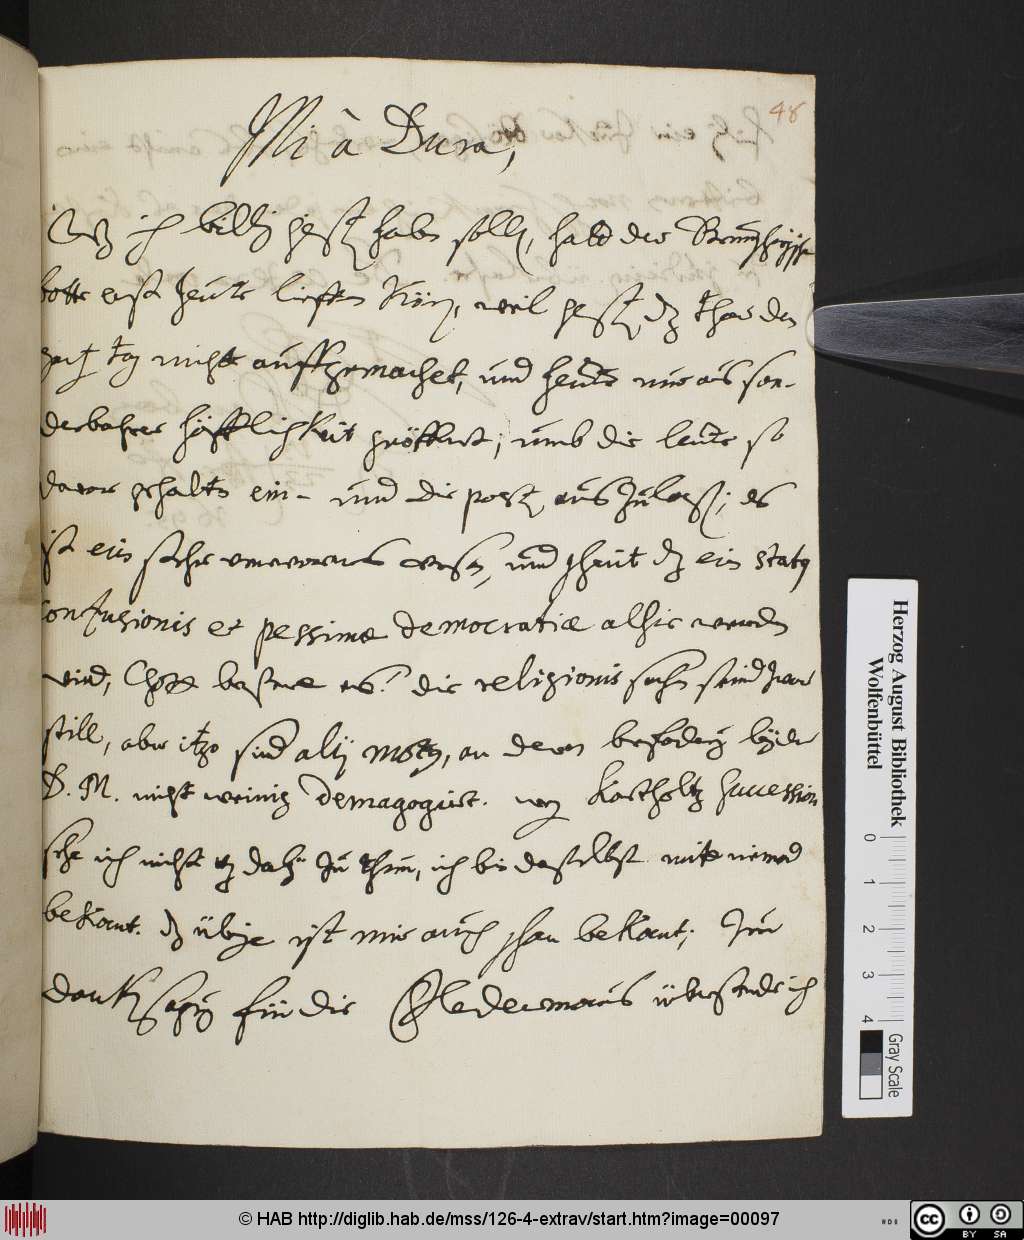 48
Mi à Dura,
ich billig gest. haben sollen, hatt der
botte erst heute lieffern Kön, weil gest. dz thor den
gantz tag nicht auffgemachet, und heute nur aus son-
derbahrer höfflichkeit geöffnet, umb die leute so
davor gehalten ein- und die post auszulaßen; es
ist ein sehr wesen, und scheint dz ein status
confusionis et pessimæ democratiæ alhie werden
wird, Gott bessere es! die religionis sachen seind zwar
still, aber itzo sind alij motus, an deren beförderung beyder
D. M. nicht weinig demagogisiret. wegen Kortholts succession
sehe ich nicht dz dabey zu thun, ich bin daselbst mitt niemand
bekant. dz übrige ist mir auch schon bekant; Zur
dancksagung für die überstende ich
Herzog August Bibliothek
Wolfenbüttel
0 1 2 3 4
Gray Scale
© HAB http://diglib.hab.de/mss/126-4-extrav/start.htm?image=00097
cc BY SA